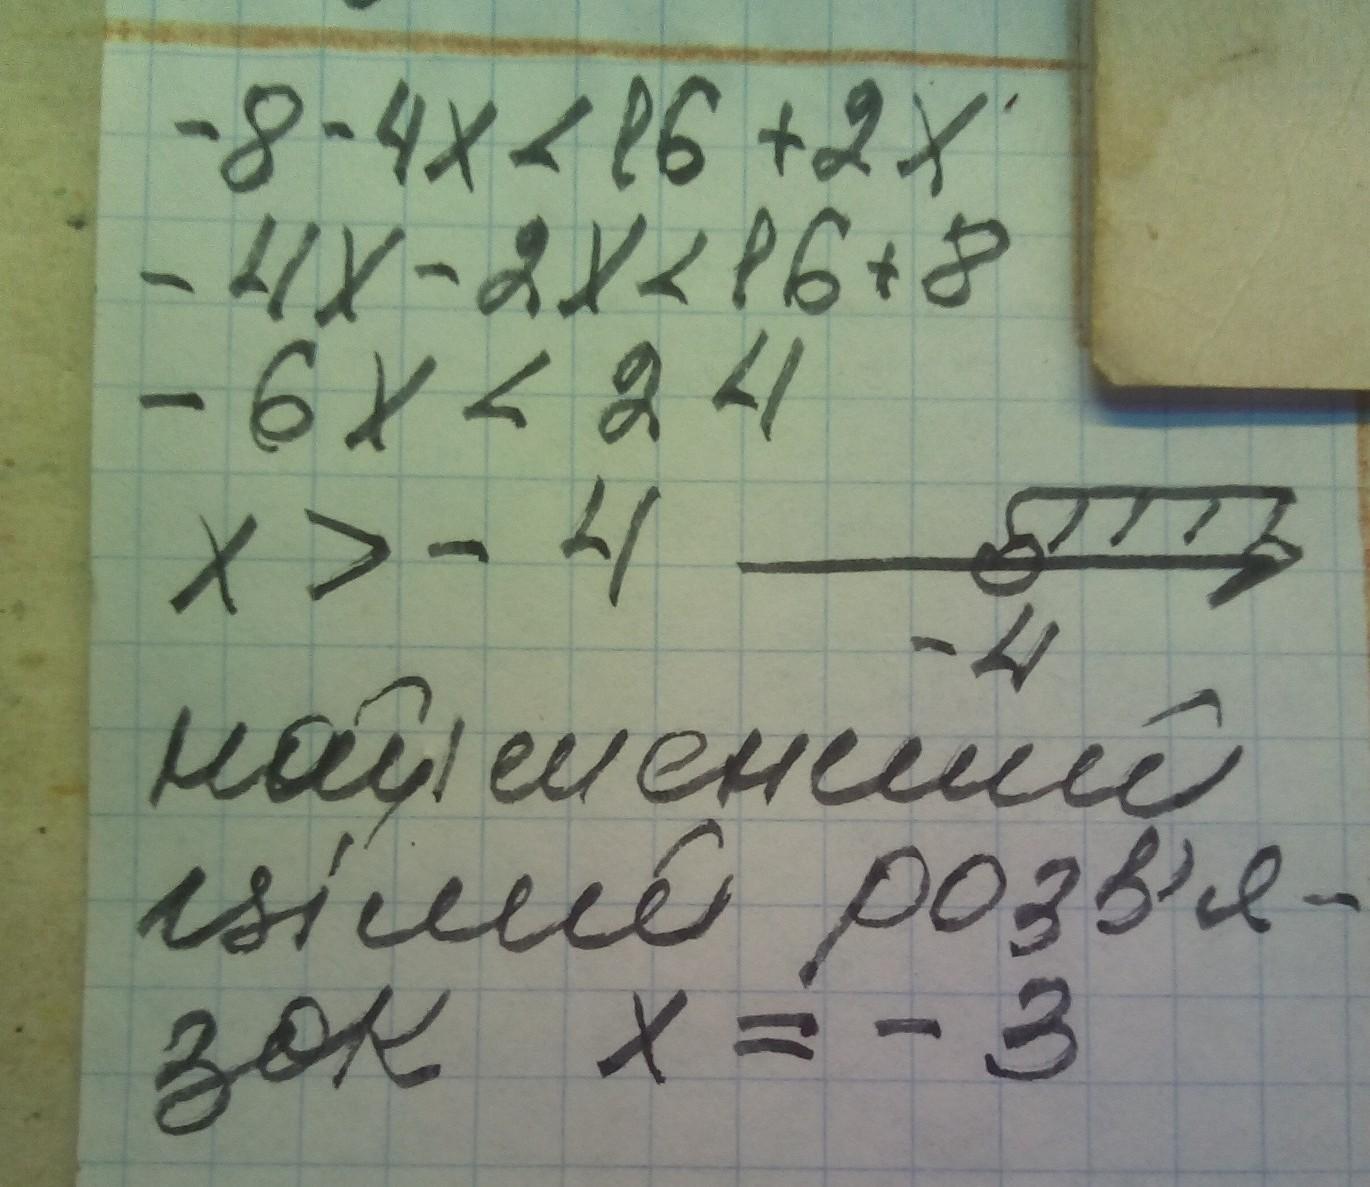 -8-4x<16+2x
-4x-2x<16+8
-6x<24
x>-4
-4
найменший
цілий розв'я-
зок x=-3